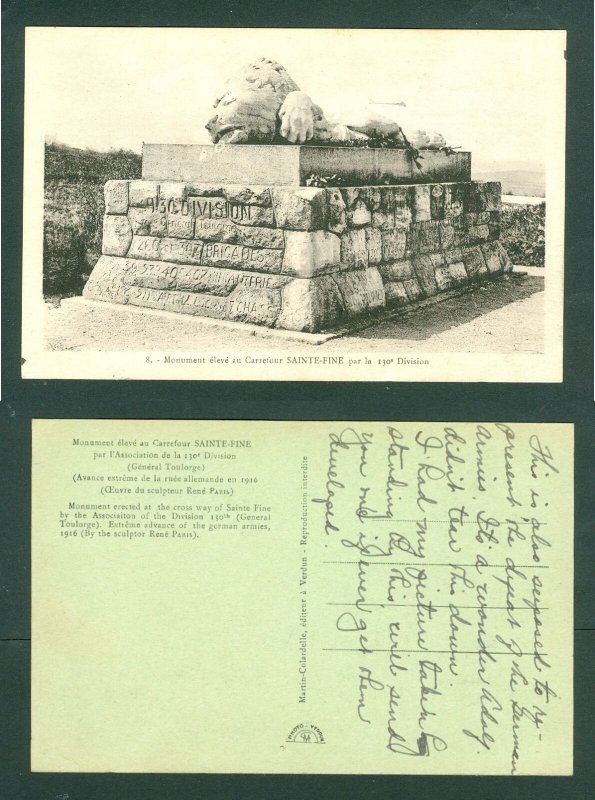 130 DIVISION
BRIGADES
8. - Monument élevé au Carrefour SAINTE-FINE par la 130e Division
Monument élevé au Carrefour SAINTE-FINE
par l'Association de la 130e Division
(Général Toulorge)
(Avance extrême de la ruée allemande en 1916
(Œuvre du sculpteur René PARIS)
Monument erected at the cross way of Sainte Fine
by the Associaiton of the Division 130th (General
Toulorge). Extrême advance of the german armies,
1916 (By the sculptor René PARIS).
Martin-Colardelle, éditeur à Verdun - Reproduction interdite
PHOTO - VERDUN
This is also supposed to re-
present the defeat of the German
Armies. It's a wonder Adolf
didn't tear this down.
I had my picture taken
standing by this will send
you one if ever get them
developed.